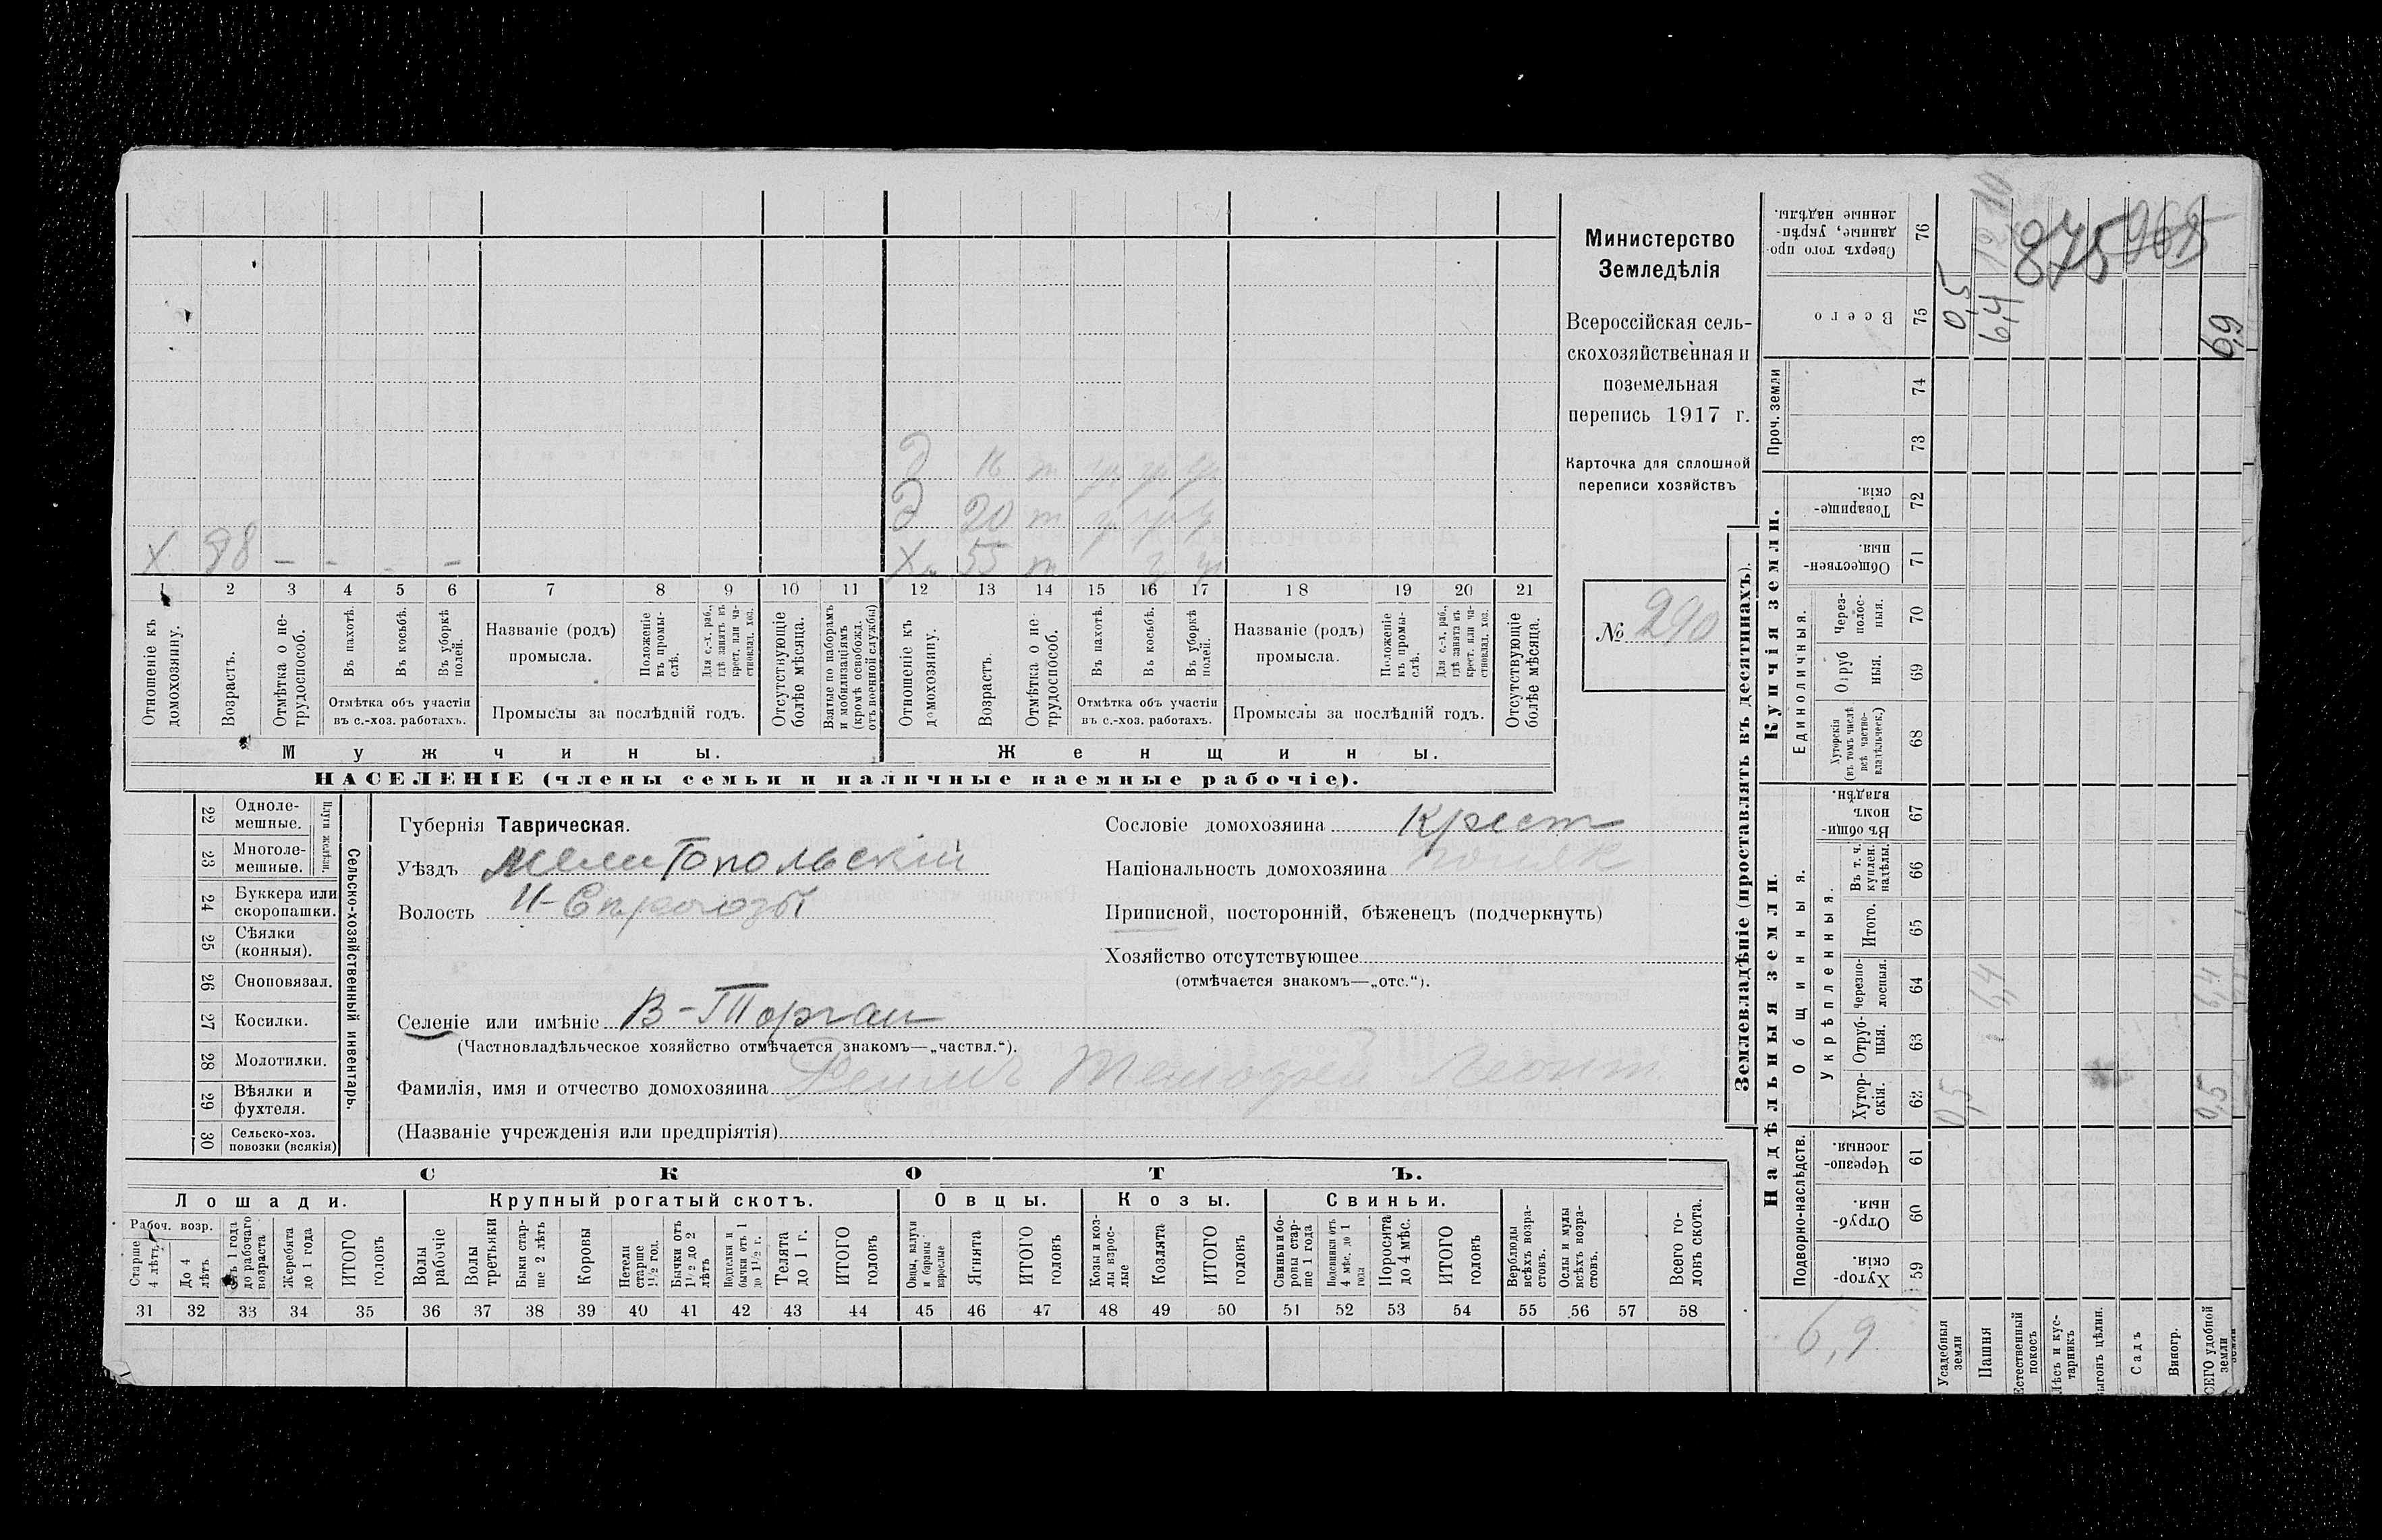 Х 98 - - - -
Д 16 т
Д 20 т
Х 55 т
1 2 3 4 5 6 7 8 9 10 11 12 13 14 15 16 17 18 19 20 21
Отношеніе къ домохозяину.
Возрастъ.
Отмѣтка о нетрудоспособ.
Въ пахотѣ.
Въ косьбѣ.
Въ уборкѣ полей.
Отмѣтка объ участіи въ с.-хоз. работахъ.
Названіе (родъ) промысла.
Положеніе въ промыслѣ.
Для с.-х. раб., гдѣ занятъ въ крест. или частновлад. хоз.
Промыслы за послѣдній годъ.
Отсутствующіе болѣе мѣсяца.
Взятые по наборамъ и мобилизаціямъ (кромѣ освобожд. отъ военной службы)
Отношеніе къ домохозяину.
Возрастъ.
Отмѣтка о нетрудоспособ.
Въ пахотѣ.
Въ косьбѣ.
Въ уборкѣ полей.
Отмѣтка объ участіи въ с.-хоз. работахъ.
Названіе (родъ) промысла.
Положеніе въ промыслѣ.
Для с.-х. раб., гдѣ занята въ крест. или частновлад. хоз.
Промыслы за послѣдній годъ.
Отсутствующіе болѣе мѣсяца.
Мужчины. Женщины.
НАСЕЛЕНІЕ (члены семьи и наличные наемные рабочіе).
Министерство
Земледѣлія
Всероссійская сель-
скохозяйственная и
поземельная
перепись 1917 г.
Карточка для сплошной
переписи хозяйствъ
№ 290
22 Одноле-
мешные.
23 Многоле-
мешные.
24 Буккера или
скоропашки.
25 Сѣялки
(конныя).
26 Сноповязал.
27 Косилки.
28 Молотилки.
29 Вѣялки и
фухтеля.
30 Сельско-хоз.
повозки (всякія)
Сельско-хозяйственный инвентарь.
Губернія Таврическая.
Уѣздъ Мелитопольскій
Волость
Селеніе или имѣніе В-Торгаи
(Частновладѣльческое хозяйство отмѣчается знакомъ—„частвл.“).
Фамилія, имя и отчество домохозяина
(Названіе учрежденія или предпріятія)
Сословіе домохозяина Крест
Національность домохозяина
Приписной, посторонній, бѣженецъ (подчеркнуть)
Хозяйство отсутствующее
(отмѣчается знакомъ—„отс.“).
СКОТЪ.
Лошади. Крупный рогатый скотъ. Овцы. Козы. Свиньи.
Рабоч. возр.
Старше 4 лѣтъ
До 4 лѣтъ
Отъ 1 года до рабочаго возраста
Жеребята до 1 года
ИТОГО головъ
Волы рабочіе
Волы третьяки
Быки старше 2 лѣтъ
Коровы
Нетели старше 1½ год.
Бычки отъ 1½ до 2 лѣтъ
Подтелки и бычки отъ 1 до 1½ г.
Телята до 1 г.
ИТОГО головъ
Овцы, валухи и бараны взрослые
Ягнята
ИТОГО головъ
Козы и козлы взрослые
Козлята
ИТОГО головъ
Свиньи и боровы старше 1 года
Подсвинки отъ 4 мѣс. до 1 года
Поросята до 4 мѣс.
ИТОГО головъ
Верблюды всѣхъ возрастовъ.
Ослы и мулы всѣхъ возрастовъ.
Всего головъ скота.
31 32 33 34 35 36 37 38 39 40 41 42 43 44 45 46 47 48 49 50 51 52 53 54 55 56 57 58
Землевладѣніе (проставлять въ десятинахъ).
Надѣльныя земли. Купчія земли.
Подворно-наслѣдств.
Общинныя.
Укрѣпленныя.
Единоличныя.
Проч. земли
Хуторскія. 59
Отрубныя. 60
Черезполосныя. 61
Хуторскія. 62
Отрубныя. 63
Черезполосныя. 64
Итого. 65
Въ т. ч. куплен. надѣлы. 66
Въ общинномъ владѣн. 67
Хуторскія (въ томъ числѣ всѣ частновладѣльческ.) 68
Отрубныя. 69
Черезполосныя. 70
Общественныя. 71
Товарищескія. 72
73
74
Всего 75
Сверхъ того проданные, укрѣпленные надѣлы. 76
Усадебныя земли 0,5 0,5
Пашня 6,4 6,4
Естественный покосъ
Лѣсъ и кустарникъ
Выгонъ цѣлин.
Садъ
Виногр.
ВСЕГО удобной земли 0,5 6,4 6,9
875
6,9